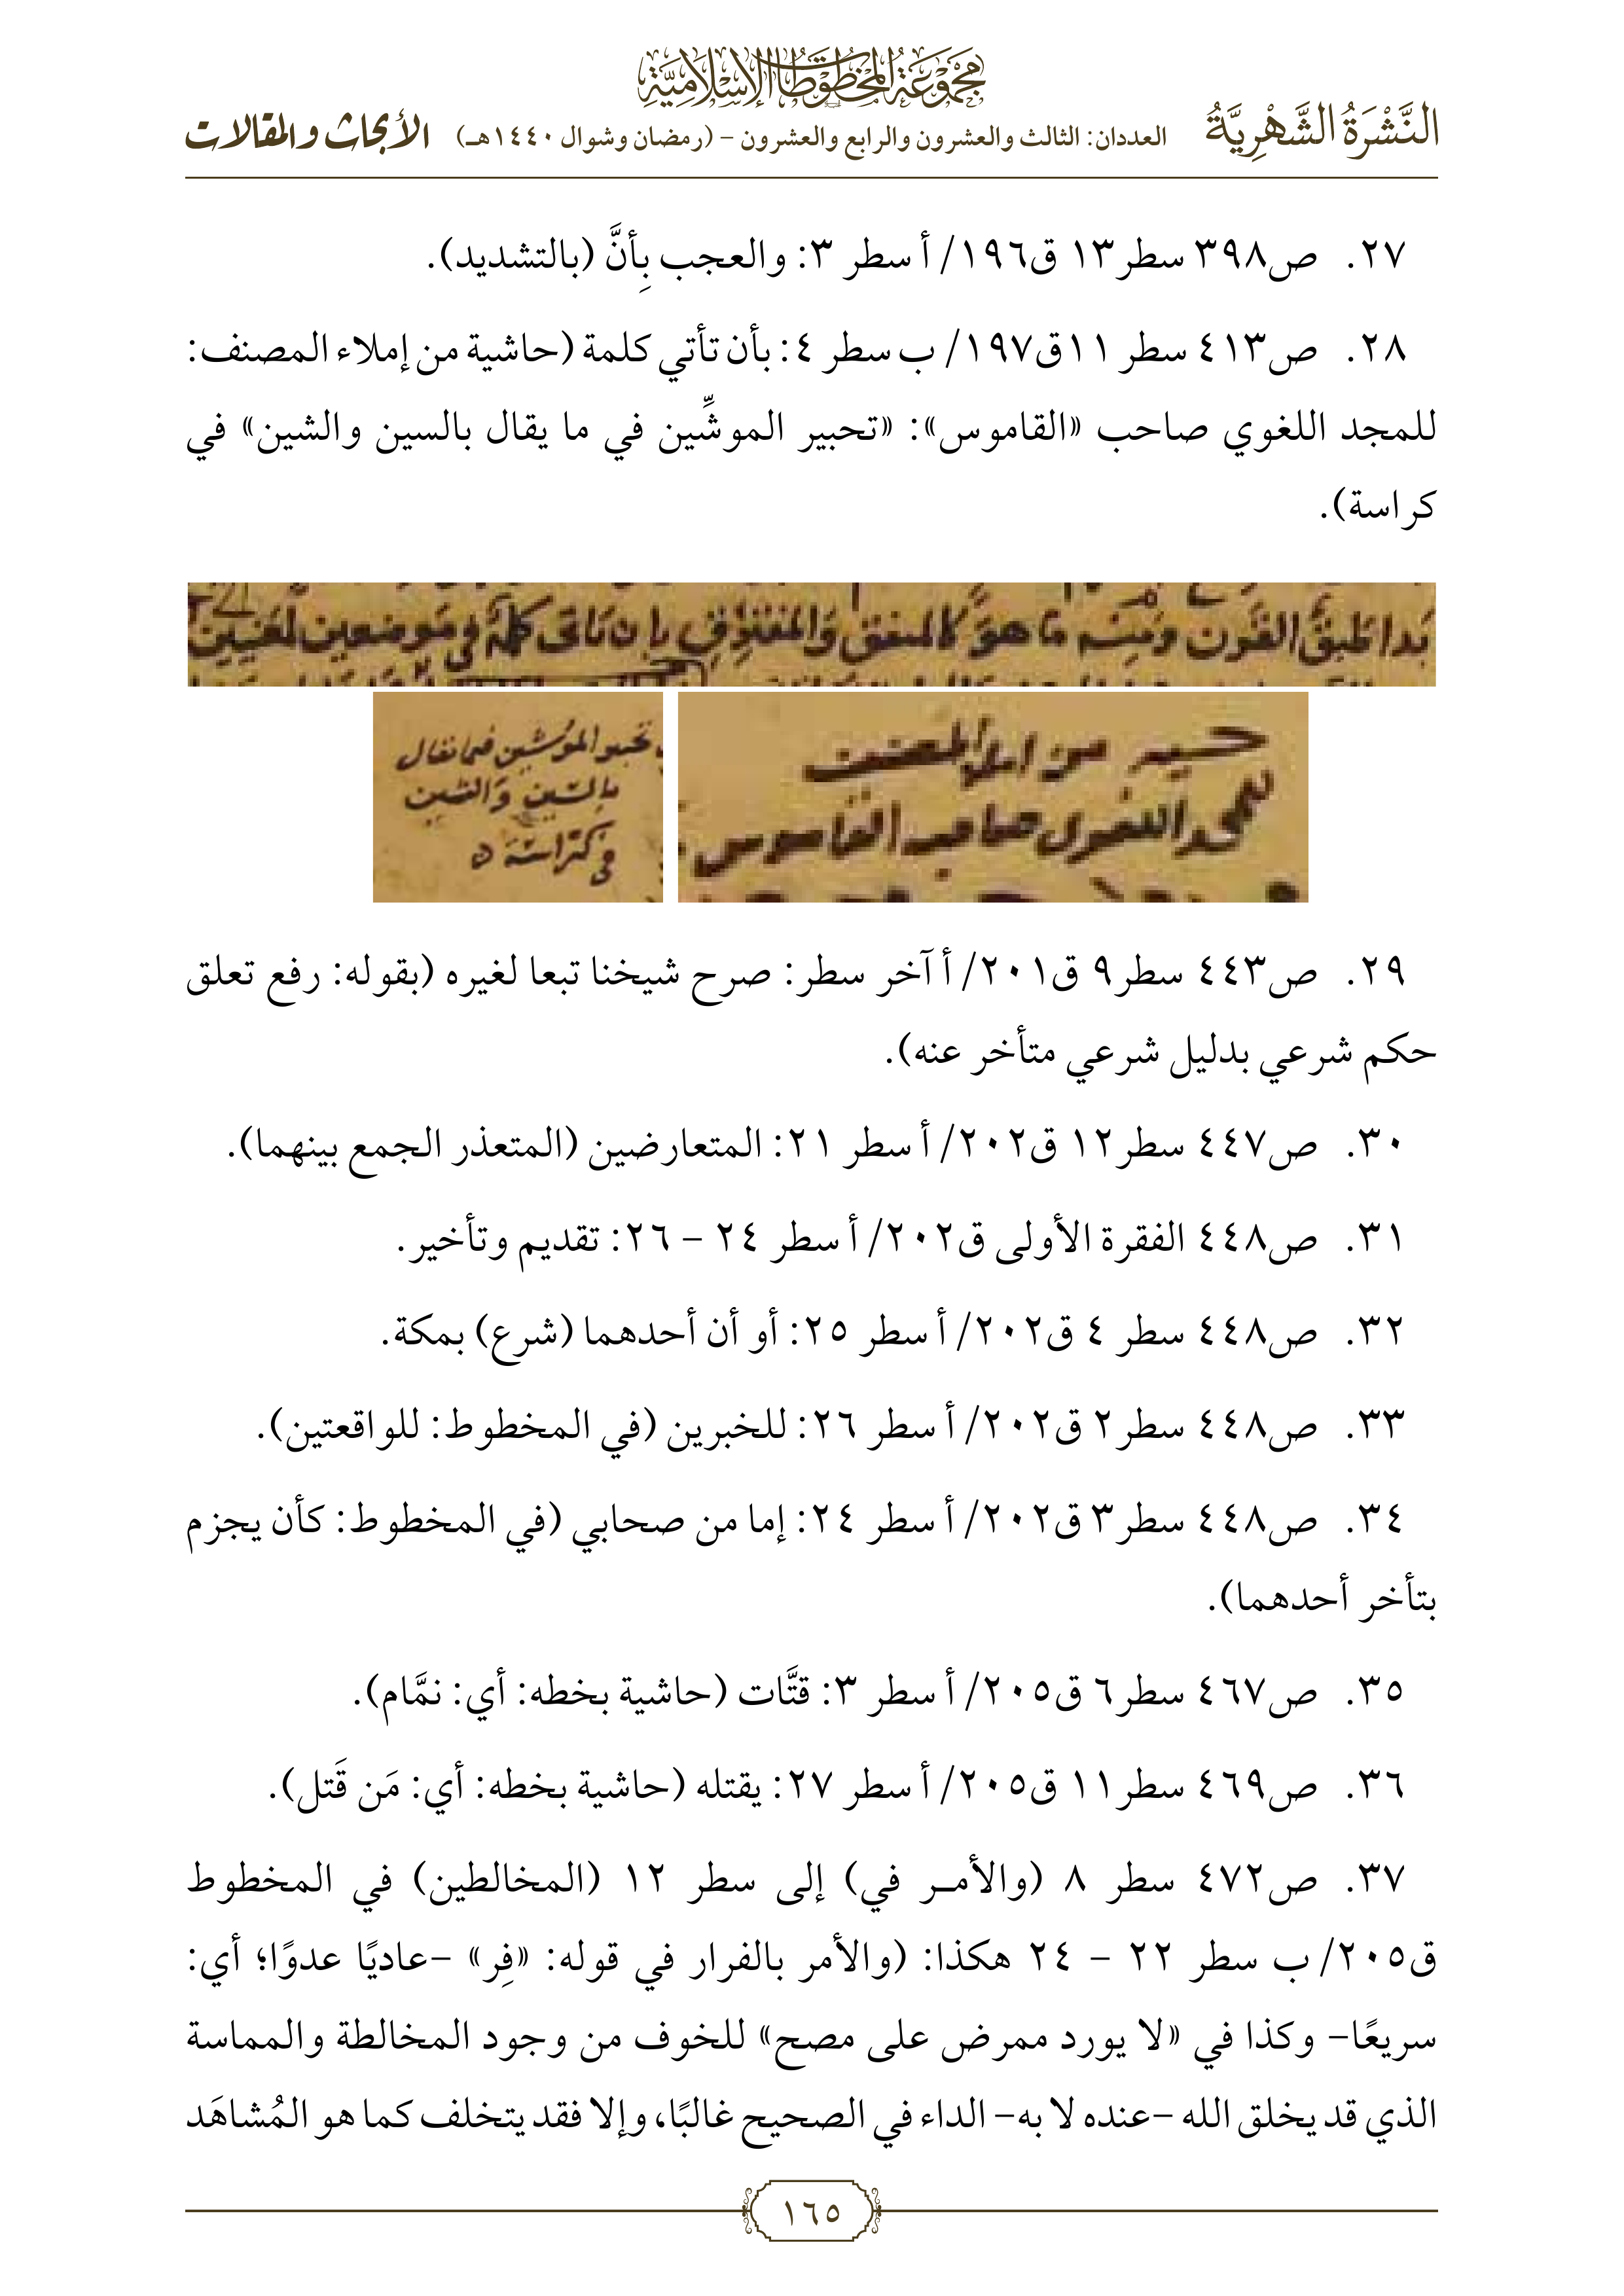 مجموعة المخطوطات الإسلامية
النَّشْرَةُ الشَّهْرِيَّةُ العددان: الثالث والعشرون والرابع والعشرون – (رمضان وشوال ١٤٤٠هـ) الأبحاث والمقالات
٢٧. ص٣٩٨ سطر١٣ ق١٩٦/ أ سطر ٣: والعجب بِأنَّ (بالتشديد).
٢٨. ص٤١٣ سطر ١١ق١٩٧/ ب سطر ٤: بأن تأتي كلمة (حاشية من إملاء المصنف:
للمجد اللغوي صاحب «القاموس»: «تحبير الموشِّين في ما يقال بالسين والشين» في
كراسة).
بان تاتى كلمة في موضعين لمعنيين
حسيه من املا المصنف
للمجد اللغوى صاحب القاموس
تحبير الموشين فيما يقال
بالسين والشين
في كراسة
٢٩. ص٤٤٣ سطر٩ ق٢٠١/ أ آخر سطر: صرح شيخنا تبعا لغيره (بقوله: رفع تعلق
حكم شرعي بدليل شرعي متأخر عنه).
٣٠. ص٤٤٧ سطر١٢ ق٢٠٢/ أ سطر ٢١: المتعارضين (المتعذر الجمع بينهما).
٣١. ص٤٤٨ الفقرة الأولى ق٢٠٢/ أ سطر ٢٤ – ٢٦: تقديم وتأخير.
٣٢. ص٤٤٨ سطر ٤ ق٢٠٢/ أ سطر ٢٥: أو أن أحدهما (شرع) بمكة.
٣٣. ص٤٤٨ سطر٢ ق٢٠٢/ أ سطر ٢٦: للخبرين (في المخطوط: للواقعتين).
٣٤. ص٤٤٨ سطر٣ ق٢٠٢/ أ سطر ٢٤: إما من صحابي (في المخطوط: كأن يجزم
بتأخر أحدهما).
٣٥. ص٤٦٧ سطر٦ ق٢٠٥/ أ سطر ٣: قتَّات (حاشية بخطه: أي: نمَّام).
٣٦. ص٤٦٩ سطر١١ ق٢٠٥/ أ سطر ٢٧: يقتله (حاشية بخطه: أي: مَن قَتل).
٣٧. ص٤٧٢ سطر ٨ (والأمـر في) إلى سطر ١٢ (المخالطين) في المخطوط
ق٢٠٥/ ب سطر ٢٢ – ٢٤ هكذا: (والأمر بالفرار في قوله: «فِر» –عاديًا عدوًا؛ أي:
سريعًا– وكذا في «لا يورد ممرض على مصح» للخوف من وجود المخالطة والمماسة
الذي قد يخلق الله –عنده لا به– الداء في الصحيح غالبًا، وإلا فقد يتخلف كما هو المُشاهَد
١٦٥